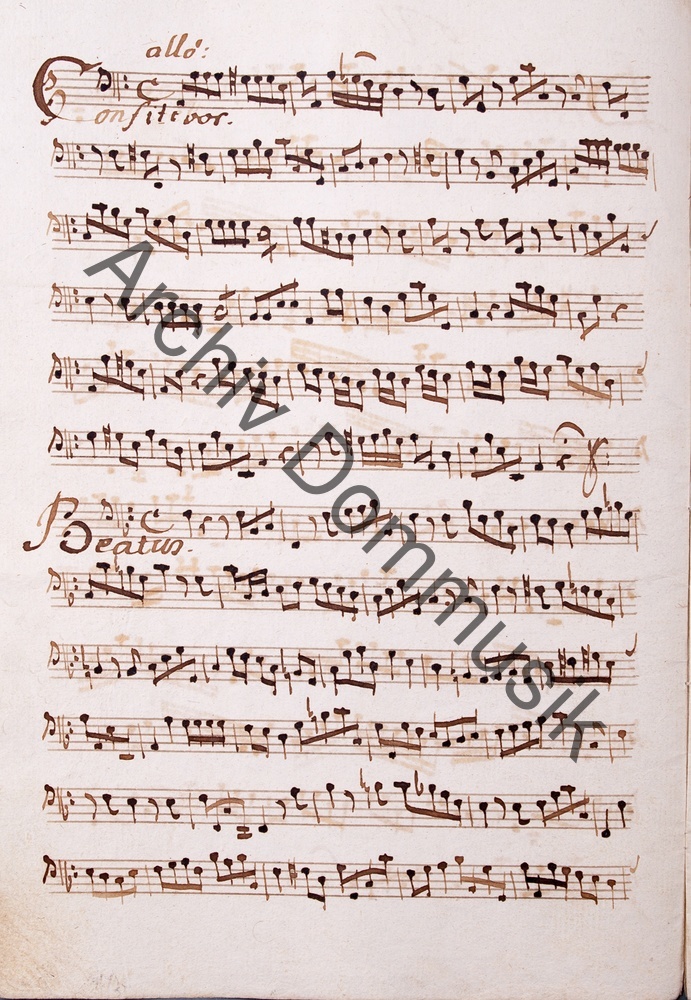 allo:
Confitebor.
Beatus.
Archiv Dommusik